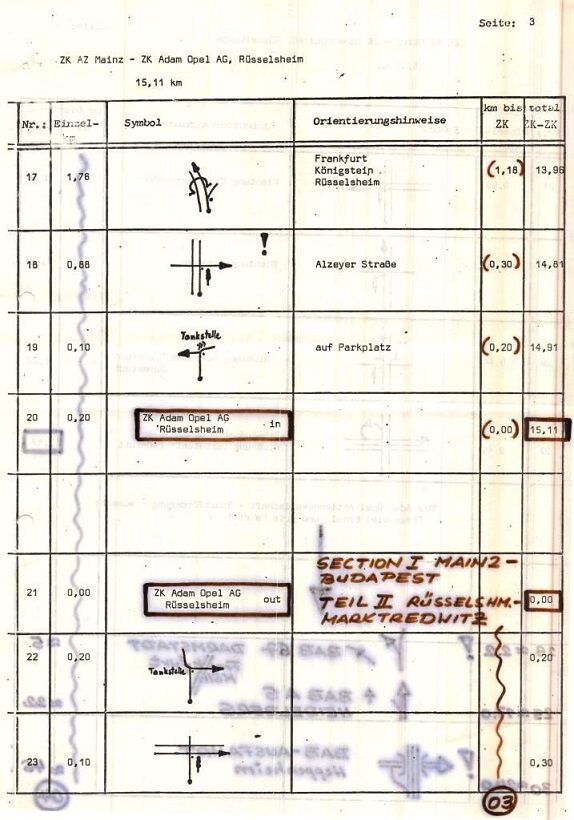 Seite: 3
ZK AZ Mainz - ZK Adam Opel AG, Rüsselsheim
15,11 km
Nr.: Einzel- km Symbol Orientierungshinweise km bis ZK total ZK-ZK
Frankfurt
17 1,78 Königstein (1,18) 13,96
Rüsselsheim
!
18 0,88 Alzeyer Straße (0,30) 14,81
Tankstelle
19 0,10 auf Parkplatz (0,20) 14,91
20 0,20 ZK Adam Opel AG (0,00) 15,11
Rüsselsheim in
SECTION I MAINZ-
BUDAPEST
21 0,00 ZK Adam Opel AG out TEIL II RÜSSELSHM.- 0,00
Rüsselsheim MARKTREDWITZ
22 0,20 Tankstelle 0,20
23 0,10 0,30
03